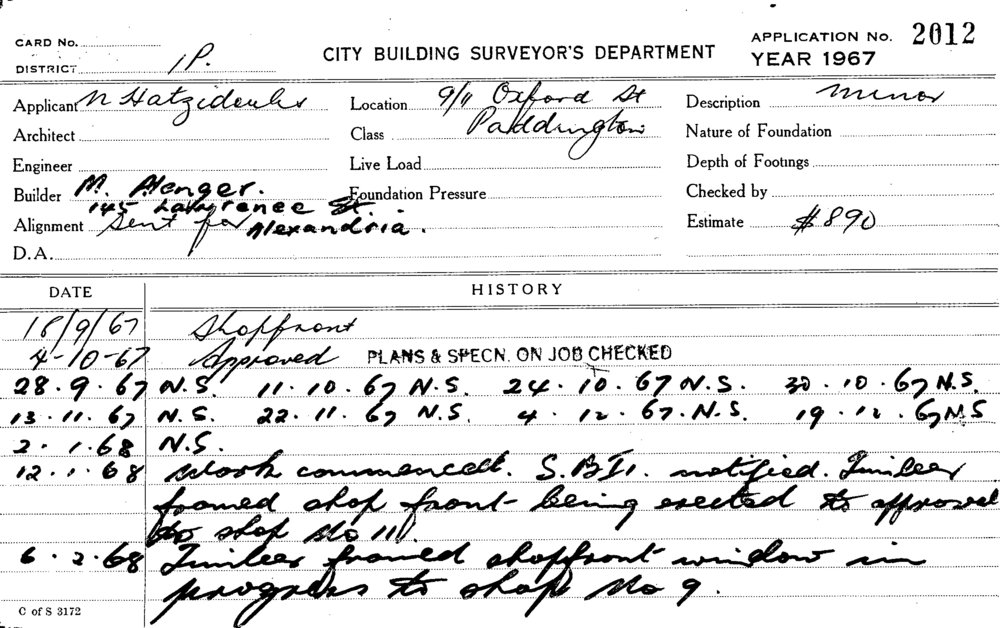 CARD No.
DISTRICT 1P.
CITY BUILDING SURVEYOR'S DEPARTMENT
APPLICATION No. 2012
YEAR 1967
Applicant N Hatzi
Location 9/11 Oxford St
Paddington
Description minor
Architect
Class
Nature of Foundation
Engineer
Live Load
Depth of Footings
Builder M.
145 Lawrence St.
Alexandria.
Foundation Pressure
Checked by
Alignment Sent for
Estimate $890
D.A.
DATE HISTORY
18/9/67 Shopfront
4-10-67 Approved PLANS & SPECN. ON JOB CHECKED
28.9.67 N.S. 11.10.67 N.S. 24.10.67 N.S. 30.10.67 N.S.
13.11.67 N.S. 22.11.67 N.S. 4.12.67. N.S. 19.12.67 N.S
2.1.68 N.S.
12.1.68 Work commenced. notified. Timber
framed shop front being erected to approval
to shop No 11.
6.2.68 Timber framed shopfront window in
progress to shop No 9.
C of S 3172